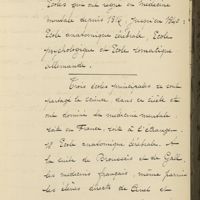 Ecoles qui ont régné en médecine
mentale depuis 1810 jusqu'en 1840 :
Ecole anatomique cérébrale, Ecoles
psychologique et Ecole somatique
allemande.
Trois écoles principales se sont
partagé la science dans ce siècle et
ont dominé la médecine mentale
soit en France, soit à l'étranger
1° Ecole anatomique cérébrale. A
la suite de Broussais et de Gall,
les médecins français, même parmi
les élèves directs de Pinel et